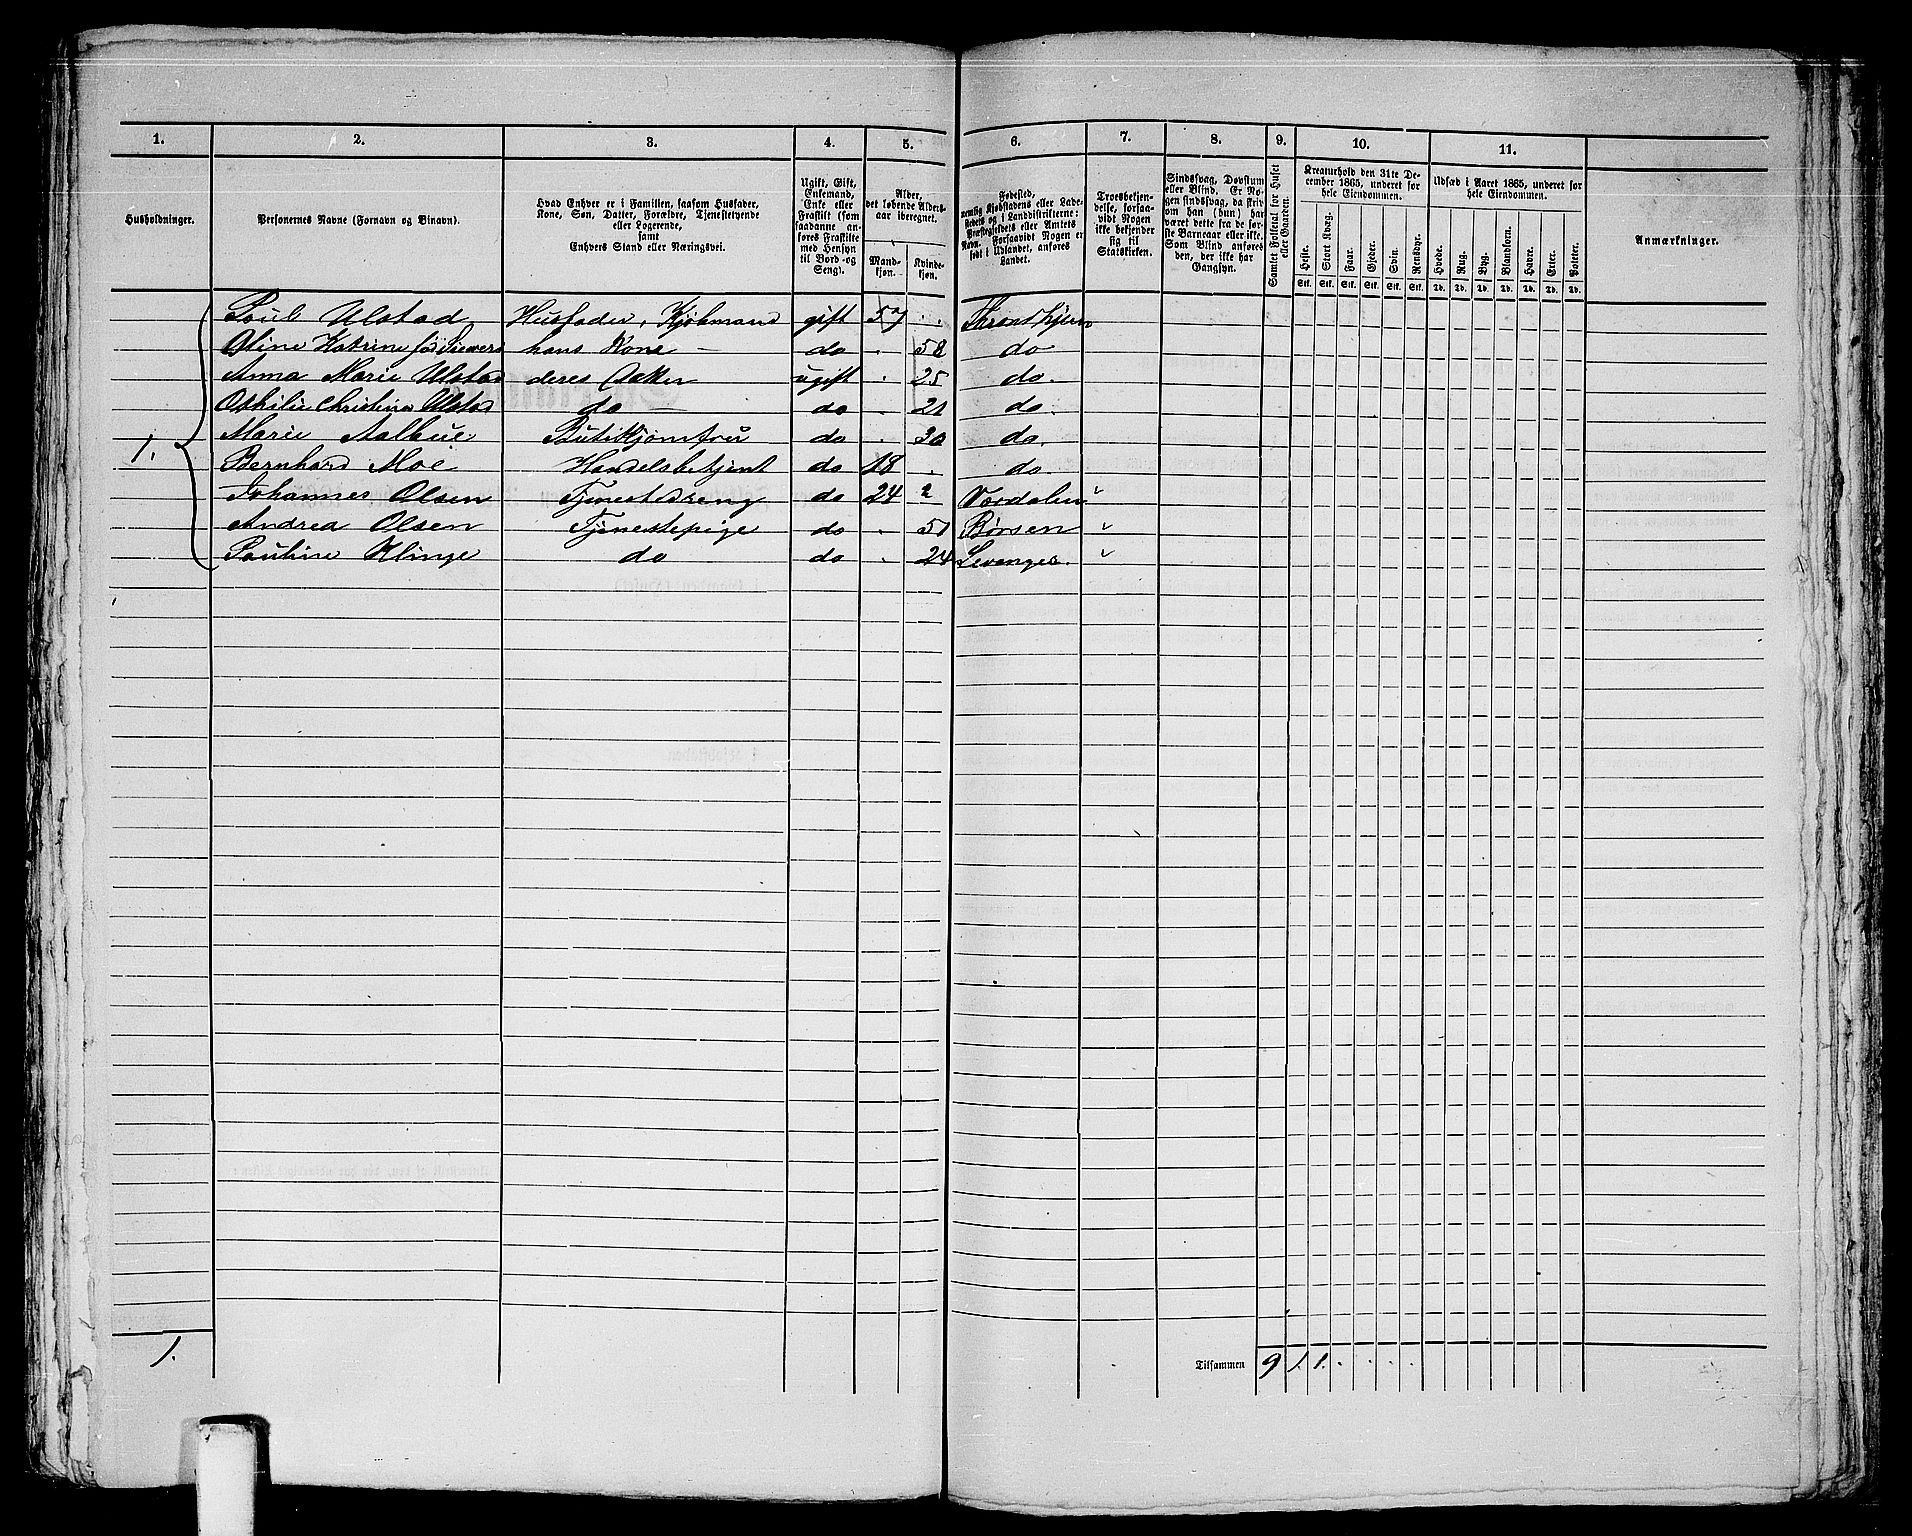 1. 2. 3. 4. 5. 6. 7. 8. 9. 10. 11.
Husholdninger.
Personernes Navne (Fornavn og Binavn).
Hvad Enhver er i Familien, saasom Husfader,
Kone, Søn, Datter, Forældre, Tjenestetyende
eller Logerende,
samt
Enhvers Stand eller Næringsvei.
Ugift, Gift,
Enkemand,
Enke eller
Fraskilt (som
saadanne an-
føres Fraskilte
med Hensyn
til Bord- og
Seng).
Alder,
det løbende Alders-
aar iberegnet.
Mand-
kjøn.
Kvinde-
kjøn.
Fødested,
nemlig Kjøbstadens eller Lade-
stedets og i Landdistrikterne:
Præstegjeldets eller Amtets
Navn. Forsaavidt Nogen er
født i Udlandet, anføres
Landet.
Troesbekjen-
delse, forsaa-
vidt Nogen
ikke bekjender
sig til
Statskirken.
Sindssvag, Døvstum
eller Blind. Er No-
gen sindssvag, da skriv
om han (hun) har
været dette fra de før-
ste Barneaar eller ikke.
Som Blind anføres
den, der ikke har
Gangsyn.
Samlet Folketal for Huset
eller Gaarden.
Kreaturhold den 31te De-
cember 1865, underet for
hele Eiendommen.
Heste. Stort Kvæg. Faar. Gjeder. Svin. Rensdyr.
Stk. Stk. Stk. Stk. Stk. Stk.
Udsæd i Aaret 1865, underet for
hele Eiendommen.
Hvede. Rug. Byg. Blandkorn. Havre. Erter. Poteter.
Td. Td. Td. Td. Td. Td. Td.
Anmærkninger.
Poul Ulstad Husfader, Kjøbmand gift 57 . . Thronthjem
Oline Katrine født Sievers hans Kone — do . 58 do
Anna Marie Ulstad deres Datter ugift . 25 do.
Othilie Christine Ulstad do — do . 21 do.
1. Marie Aalbue Butikjomfru do . 30 do.
Bernhard Moe Handelsbetjent do 18 . do
Johannes Olsen Tjenestedreng do 24 Værdalen
Andrea Olsen Tjenestepige do . 51 Børsen
Pauline Klinge do do . 24 Levanger.
1. Tilsammen 9 1. 1. . . . .